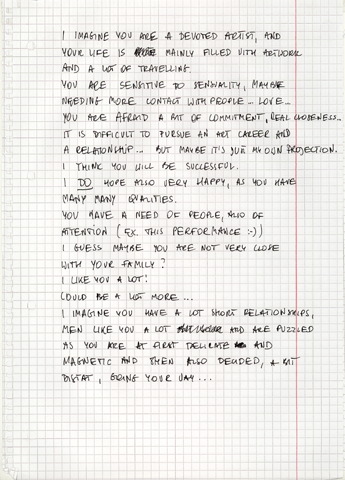 I IMAGINE YOU ARE A DEVOTED ARTIST, AND
YOUR LIFE IS MAINLY FILLED WITH ARTWORK
AND A LOT OF TRAVELLING.
YOU ARE SENSITIVE TO SENSUALITY, MAYBE
NEEDING MORE CONTACT WITH PEOPLE... LOVE...
YOU ARE AFRAID A BIT OF COMMITMENT, REAL CLOSENESS...
IT IS DIFFICULT TO PURSUE AN ART CAREER AND
A RELATIONSHIP... BUT MAYBE IT'S JUST MY OWN PROJECTION.
I THINK YOU WILL BE SUCCESSFUL.
I DO HOPE ALSO VERY HAPPY, AS YOU HAVE
MANY MANY QUALITIES.
YOU HAVE A NEED OF PEOPLE, ALSO OF
ATTENTION (EX. THIS PERFORMANCE :-))
I GUESS MAYBE YOU ARE NOT VERY CLOSE
WITH YOUR FAMILY?
I LIKE YOU A LOT!
COULD BE A LOT MORE...
I IMAGINE YOU HAVE A LOT SHORT RELATIONSHIPS,
MEN LIKE YOU A LOT AND ARE PUZZLED
AS YOU ARE AT FIRST DELICATE AND
MAGNETIC AND THEN ALSO DECIDED, A BIT
DISTAT, GOING YOUR WAY...